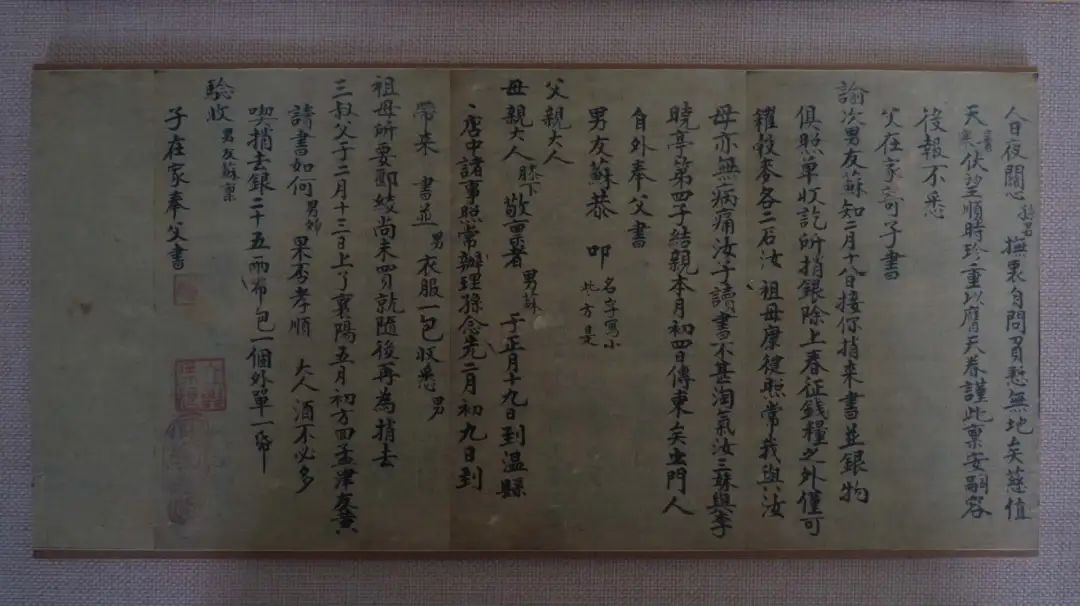 人日夜關心孫男撫衷自問罪愆無地矣茲值
天寒伏望順時珍重以膺天眷謹此稟安嗣容
後報不悉
父在家寄子書
諭次男友蘇知二月十八日接你捎來書並銀物
俱照單收訖所捎銀除上春征錢糧之外僅可
糴穀麥各二石汝祖母康健照常我與汝
母亦無病痛汝子讀書不甚淘氣汝三妹與李
曉亭第四子結親本月初四日傳柬矣出門人
自外奉父書
男友蘇恭叩名字寫小些方是
父親大人
母親大人膝下敬稟者男蘇于正月十九日到温縣
唐中諸事照常辦理孫念先二月初九日到
帶來書並男衣服一包收悉男
祖母所要鄖紋尚未買就隨後再為捎去
三叔父于二月十三日上了襄陽五月初方回孟津友黃
請書如何男婦果否孝順大人酒不必多
喫捎去銀二十五兩布包一個外單一帋
驗收男友蘇稟
子在家奉父書